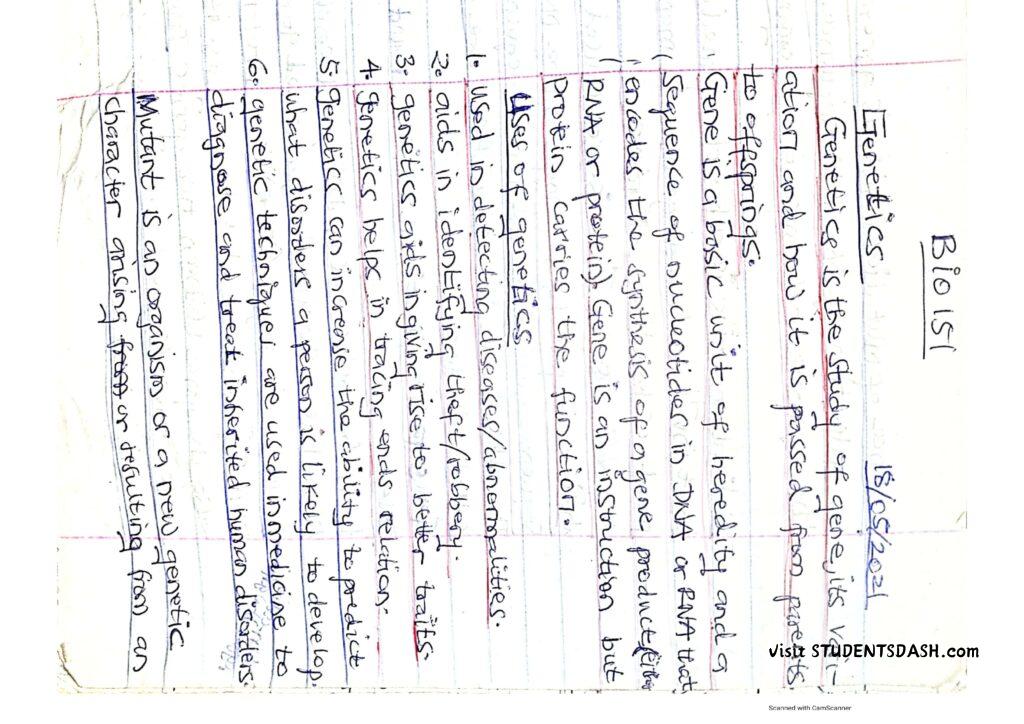 Bio 151
Genetics 18/05/2021
Genetics is the study of gene, its vari-
ation and how it is passed from parents
to offsprings.
Gene is a basic unit of heredity and a
sequence of nucleotides in DNA or RNA that
encodes the synthesis of a gene product (either
RNA or protein). Gene is an instruction but
protein carries the function.
Uses of genetics
1. used in detecting diseases/abnormalities.
2. aids in identifying theft/robbery.
3. genetics aids in giving rise to better traits.
4. genetics helps in tracing ends relation.
5. genetics can increase the ability to predict
what disorders a person is likely to develop.
6. genetic techniques are used in medicine to
diagnose and treat inherited human disorders.
Mutant is an organism or a new genetic
character arising from or resulting from an
visit STUDENTSDASH.com
Scanned with CamScanner